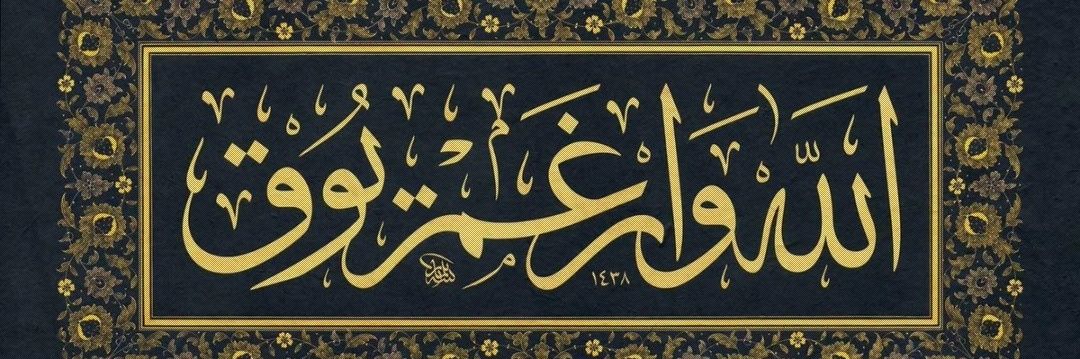 الله وار غم يوق
١٤٣٨